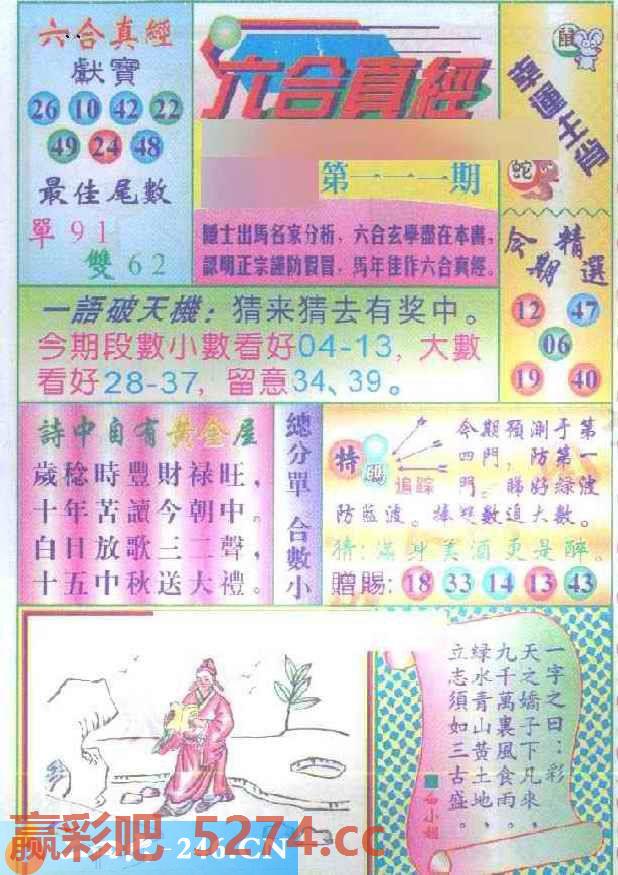 六合真經
獻寶
26 10 42 22
49 24 48
最佳尾數
單91
雙62
六合真經
第一一一期
隱士出馬名家分析，六合玄學盡在本書，
認明正宗謹防假冒，馬年佳作六合真經。
鼠
幸運生肖
蛇
今期精選
12 47
06
19 40
一語破天機：猜来猜去有奖中。
今期段數小數看好04-13，大數
看好28-37，留意34、39。
詩中自有黃金屋
歲稔時豐財禄旺，
十年苦讀今朝中。
白日放歌三二聲，
十五中秋送大禮。
總分單 合數小
特碼
追踪
今期預測于第
四門，防第一
門。睇好綠波
防藍波。捧雙數追大數。
猜：滿身美酒更是醉。
贈賜：18 33 14 13 43
一字之曰：彩
天之嬌子下凡來，
九千萬裏風食雨，
绿水青山黃土地，
立志須如三古盛。
小姐
赢彩吧 5274.cc
246.CN